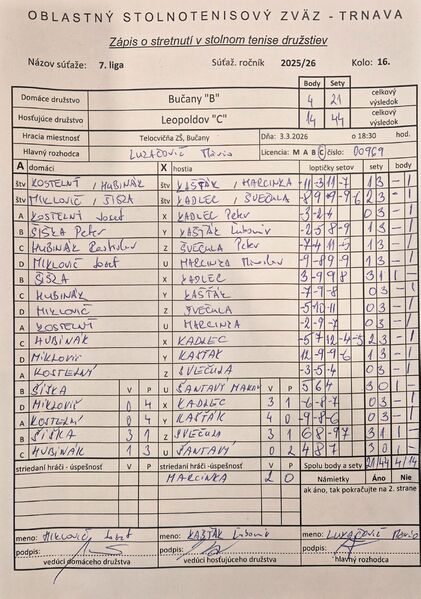 OBLASTNÝ STOLNOTENISOVÝ ZVÄZ - TRNAVA
Zápis o stretnutí v stolnom tenise družstiev
Názov súťaže: 7. liga Súťaž. ročník 2025/26 Kolo: 16.
Body Sety
Domáce družstvo Bučany "B" 4 21 celkový výsledok
Hosťujúce družstvo Leopoldov "C" 14 44 celkový výsledok
Hracia miestnosť Telocvičňa ZŠ, Bučany Dňa: 3.3.2026 o 18:30 hod.
Hlavný rozhodca LUKAČOVIČ Mário Licencia: M A B C číslo: 00969
A domáci X hostia loptičky setov sety body
štv KOSTELNÝ / HUBINÁK štv KAŠŤÁK / MARCINKA 1 3 - 1
štv MIKLOVIČ / ŠIŠKA štv KADLEC / ŠVEČULA 2 3 - 1
A KOSTELNÝ Jozef X KADLEC Peter -3-2-4 0 3 - 1
B ŠIŠKA Peter Y KAŠŤÁK Ľubomír 1 3 - 1
C HUBINÁK Rastislav Z ŠVEČULA Peter 1 3 - 1
D MIKLOVIČ Jozef U MARCINKA Miroslav 1 3 - 1
B ŠIŠKA X KADLEC 3-998 3 1 1 -
C HUBINÁK Y KAŠŤÁK -7-9-8 0 3 - 1
D MIKLOVIČ Z ŠVEČULA 0 3 - 1
A KOSTELNÝ U MARCINKA -2-9-7 0 3 - 1
C HUBINÁK X KADLEC 2 3 - 1
D MIKLOVIČ Y KAŠŤÁK 1 3 - 1
A KOSTELNÝ Z ŠVEČULA -3-5-4 0 3 - 1
B ŠIŠKA V P U ŠANTAVÝ V P 5 6 4 3 0 1 -
D MIKLOVIČ 0 4 X KADLEC 3 1 0 3 - 1
A KOSTELNÝ 0 4 Y KAŠŤÁK 4 0 -9-8-6 0 3 - 1
B ŠIŠKA 3 1 Z ŠVEČULA 3 1 68-97 3 1 1 -
C HUBINÁK 1 3 U ŠANTAVÝ 0 2 4 8 7 3 0 1 -
striedaní hráči - úspešnosť V P striedaní hráči - úspešnosť V P Spolu body a sety 21/44 4/14
MARCINKA 2 0 Námietky Áno Nie
ak áno, tak pokračujte na 2. strane
meno: MIKLOVIČ Jozef meno: KAŠŤÁK Ľubomír meno: LUKAČOVIČ Mário
podpis: podpis: podpis:
vedúci domáceho družstva vedúci hosťujúceho družstva hlavný rozhodca